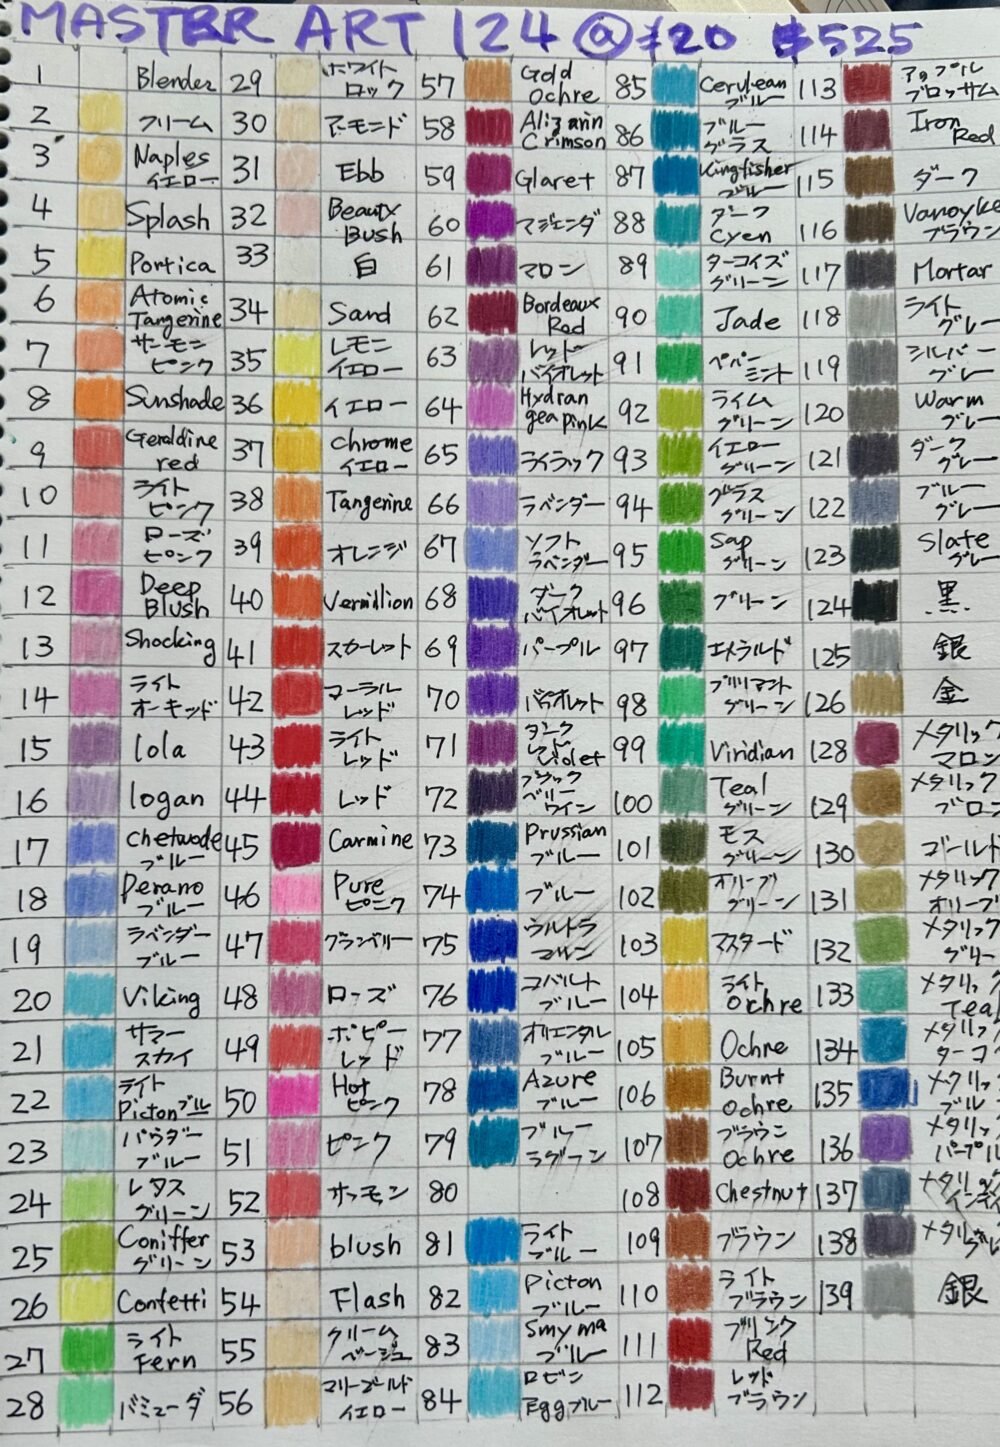 MASTER ART 124 @ $20 $525
1 Blender
2 クリーム
3 Naples イエロー
4 Splash
5 Portica
6 Atomic Tangerine
7 サーモン ピンク
8 Sunshade
9 Geraldine red
10 ライト ピンク
11 ローズ ピンク
12 Deep Blush
13 Shocking
14 ライト オーキッド
15 lola
16 logan
17 Chetwode ブルー
18 Perano ブルー
19 ラベンダー ブルー
20 Viking
21 サマー スカイ
22 ライト Picton ブルー
23 パウダー ブルー
24 レタス グリーン
25 Coniffer グリーン
26 Confetti
27 ライト Fern
28 バミューダ
29 ホワイト ロック
30 アーモンド
31 Ebb
32 Beauty Bush
33 白
34 Sand
35 レモン イエロー
36 イエロー
37 chrome イエロー
38 Tangerine
39 オレンジ
40 Vermillion
41 スカーレット
42 コーラル レッド
43 ライト レッド
44 レッド
45 Carmine
46 Pure ピンク
47 クランベリー
48 ローズ
49 ポピー レッド
50 Hot ピンク
51 ピンク
52 サーモン
53 blush
54 Flash
55 クリーム ベージュ
56 マリーゴールド イエロー
57 Gold Ochre
58 Alizarin Crimson
59 Glaret
60 マジェンダ
61 マロン
62 Bordeaux Red
63 レッド バイオレット
64 Hydran gea pink
65 ライラック
66 ラベンダー
67 ソフト ラベンダー
68 ダーク バイオレット
69 パープル
70 バイオレット
71 ダーク レッド Violet
72 ブラック ベリー ワイン
73 Prussian ブルー
74 ブルー
75 ウルトラ マリン
76 コバルト ブルー
77 オリエンタル ブルー
78 Azure ブルー
79 ブルー ラグーン
80
81 ライト ブルー
82 Picton ブルー
83 Smyrna ブルー
84 ロビン Egg ブルー
85 Cerulean ブルー
86 ブルー グラス
87 Kingfisher ブルー
88 ダーク Cyen
89 ターコイズ グリーン
90 Jade
91 ペパー ミント
92 ライム グリーン
93 イエロー グリーン
94 グラス グリーン
95 Sap グリーン
96 グリーン
97 エメラルド
98 ブリリアント グリーン
99 Viridian
100 Teal グリーン
101 モス グリーン
102 オリーブ グリーン
103 マスタード
104 ライト Ochre
105 Ochre
106 Burnt Ochre
107 ブラウン Ochre
108 Chestnut
109 ブラウン
110 ライト ブラウン
111 ブリック Red
112 レッド ブラウン
113 アップル ブロッサム
114 Iron Red
115 ダーク
116 Vanoyke ブラウン
117 Mortar
118 ライト グレー
119 シルバー グレー
120 Warm グレー
121 ダーク グレー
122 ブルー グレー
123 Slate グレー
124 黒
125 銀
126 金
128 メタリック マロン
129 メタリック ブロン
130 ゴールド
131 メタリック オリーブ
132 メタリック グリー
133 メタリック Teal
134 メタリック ターコ
135 メタリック ブルー
136 メタリック パープル
137 メタリック インディ
138 メタリ グレ
139 銀